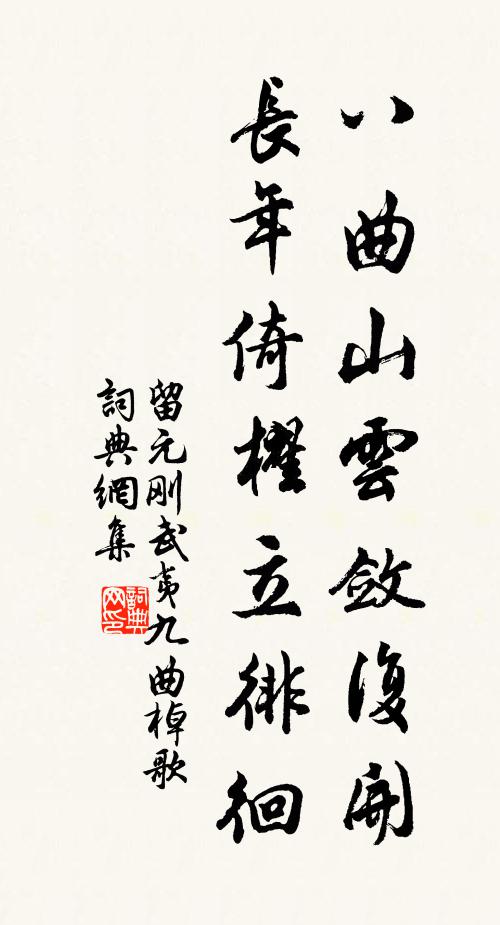 八曲山雲斂復開
長年倚櫂立徘徊
留元刚武夷九曲棹歌
詞典網集
詞典网印